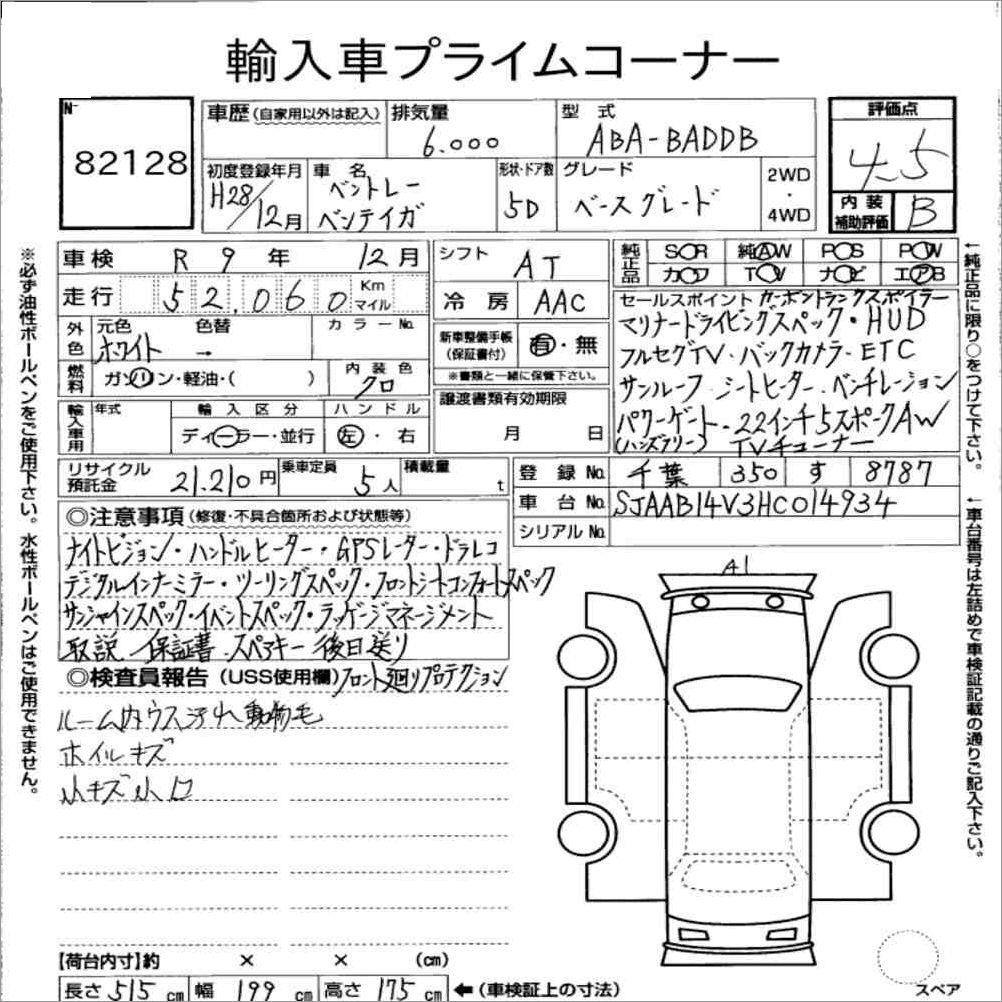 輸入車プライムコーナー
№ 82128
車歴(自家用以外は記入) 排気量 6.000 型式 ABA-BADDB 評価点 4.5
初度登録年月 H28/12月 車名 ベントレー ベンテイガ 形状・ドア数 5D グレード ベースグレード 2WD・4WD 内装補助評価 B
車検 R 9年 12月 シフト AT 純正品 SOR 純AW POS POW
走行 52.060 Km マイル 冷房 AAC カワ TOV ナビ エアB
外色 元色 ホワイト 色替 → カラーNo.
燃料 ガソリン・軽油・( ) 内装色 クロ
新車整備手帳(保証書付) 有・無
※書類と一緒に保管下さい。
輸入車用 年式 輸入区分 ディーラー・並行 ハンドル 左・右
譲渡書類有効期限 月 日
セールスポイント カーボントランクスポイラー
マリナードライビングスペック・HUD
フルセグTV・バックカメラ・ETC
サンルーフ・シートヒーター・ベンチレーション
パワーゲート・22インチ5スポークAW
(ハンズフリー) TVチューナー
リサイクル預託金 21.210円 乗車定員 5人 積載量 t
登録No. 千葉 350 す 8787
車台No. SJAAB14V3HC014934
シリアルNo.
◎注意事項(修復・不具合箇所および状態等)
ナイトビジョン・ハンドルヒーター・GPSレーダー・ドラレコ
デジタルインナーミラー・ツーリングスペック・フロントシートコンフォートスペック
サンシャインスペック・イベントスペック・ラッゲージマネージメント
取説 保証書 スペアキー 後日送り
◎検査員報告(USS使用欄) フロント廻りプロテクション
ルーム内ウス汚れ 動物毛
ホイルキズ
小キズ小凹
A1
スペア
【荷台内寸】約 × × (cm)
長さ 515 cm 幅 199 cm 高さ 175 cm ←(車検証上の寸法)
※必ず油性ボールペンをご使用下さい。水性ボールペンはご使用できません。
←純正品に限り○をつけて下さい。
←車台番号は左詰めで車検証記載の通りご記入下さい。